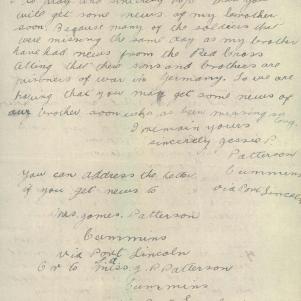 to pray and sincerely hope that you
will get some news of my brother
soon. Because many of the soldiers that
were missing the same day as my brother
have had news from the Red Cross
telling that their sons and brothers are
prisoners of war in Germany. So we are
hoping that you may get some news of
our brother soon who as been missing so long.
I remain yours
sincerely Jessie P.
Patterson
Cummins
via Port Lincoln
You can address the letter
if you get news to
Mrs. James. Patterson
Cummins
via Port Lincoln
S.A
Or to Miss J. P. Patterson
Cummins